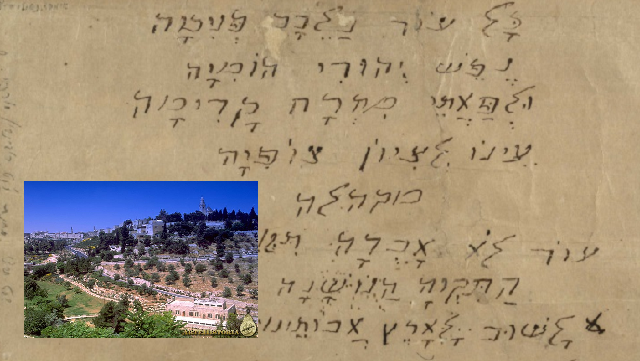 כָּל עוֹד בַּלֵּבָב פְּנִימָה
נֶפֶשׁ יְהוּדִי הוֹמִיָּה
וּלְפַאֲתֵי מִזְרָח קָדִימָה
עֵינוֹ לְצִיּוֹן צוֹפִיָּה
מקהלה
עוֹד לֹא אָבְדָה
הַתִּקְוָה הַנּוֹשָׁנָה
לָשׁוּב לָאָרֶץ אֲבוֹתֵינוּ